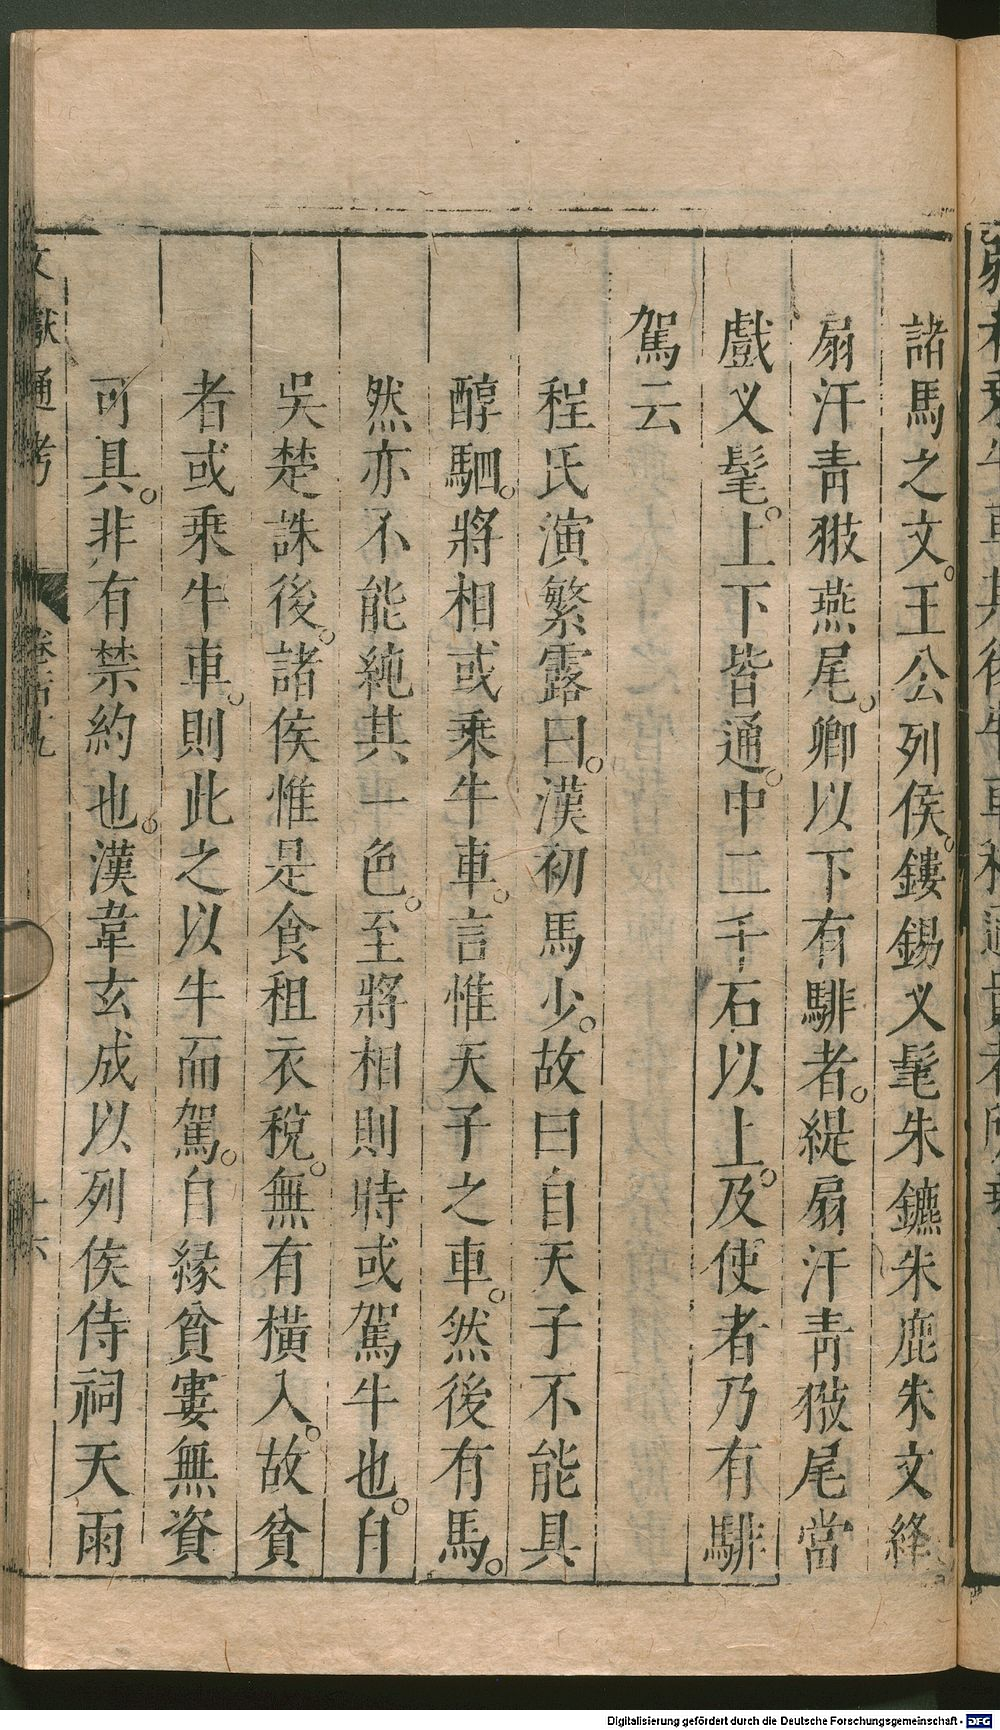 諸馬之文。王公列侯。鏤錫义髦朱鑣朱鹿朱文絳
扇汗青翍燕尾。卿以下有騑者。緹扇汗青翍尾當
戲义髦。上下皆通。中二千石以上。及使者乃有騑
駕云
程氏演繁露曰。漢初馬少。故曰自天子不能具
醇駟。將相或乗牛車。言惟天子之車。然後有馬。
然亦不能純其一色。至將相則時或駕牛也。自
吳楚誅後。諸侯惟是食租衣稅。無有橫入。故貧
者或乗牛車。則此之以牛而駕。自緣貧窶無資
可具。非有禁約也。漢韋玄成以列侯侍祠天雨
文獻通考
十六
Digitalisierung gefördert durch die Deutsche Forschungsgemeinschaft - DFG